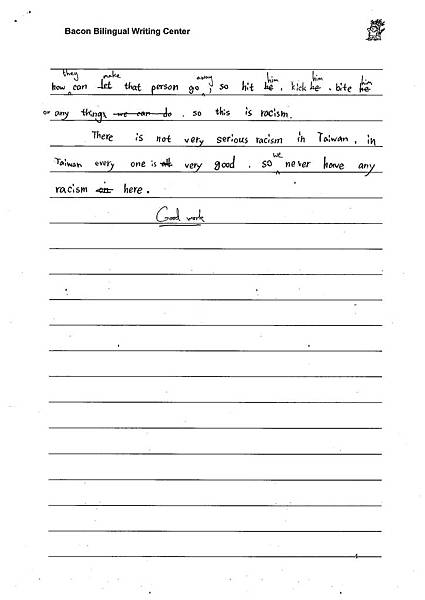 Bacon Bilingual Writing Center
they make away him him him
how can let that person go, so hit he, kick he, bite he
or any things we can do, so this is racism.
There is not very serious racism in Taiwan, in
we
Taiwan every one is all very good, so never have any
racism in here.
Good work